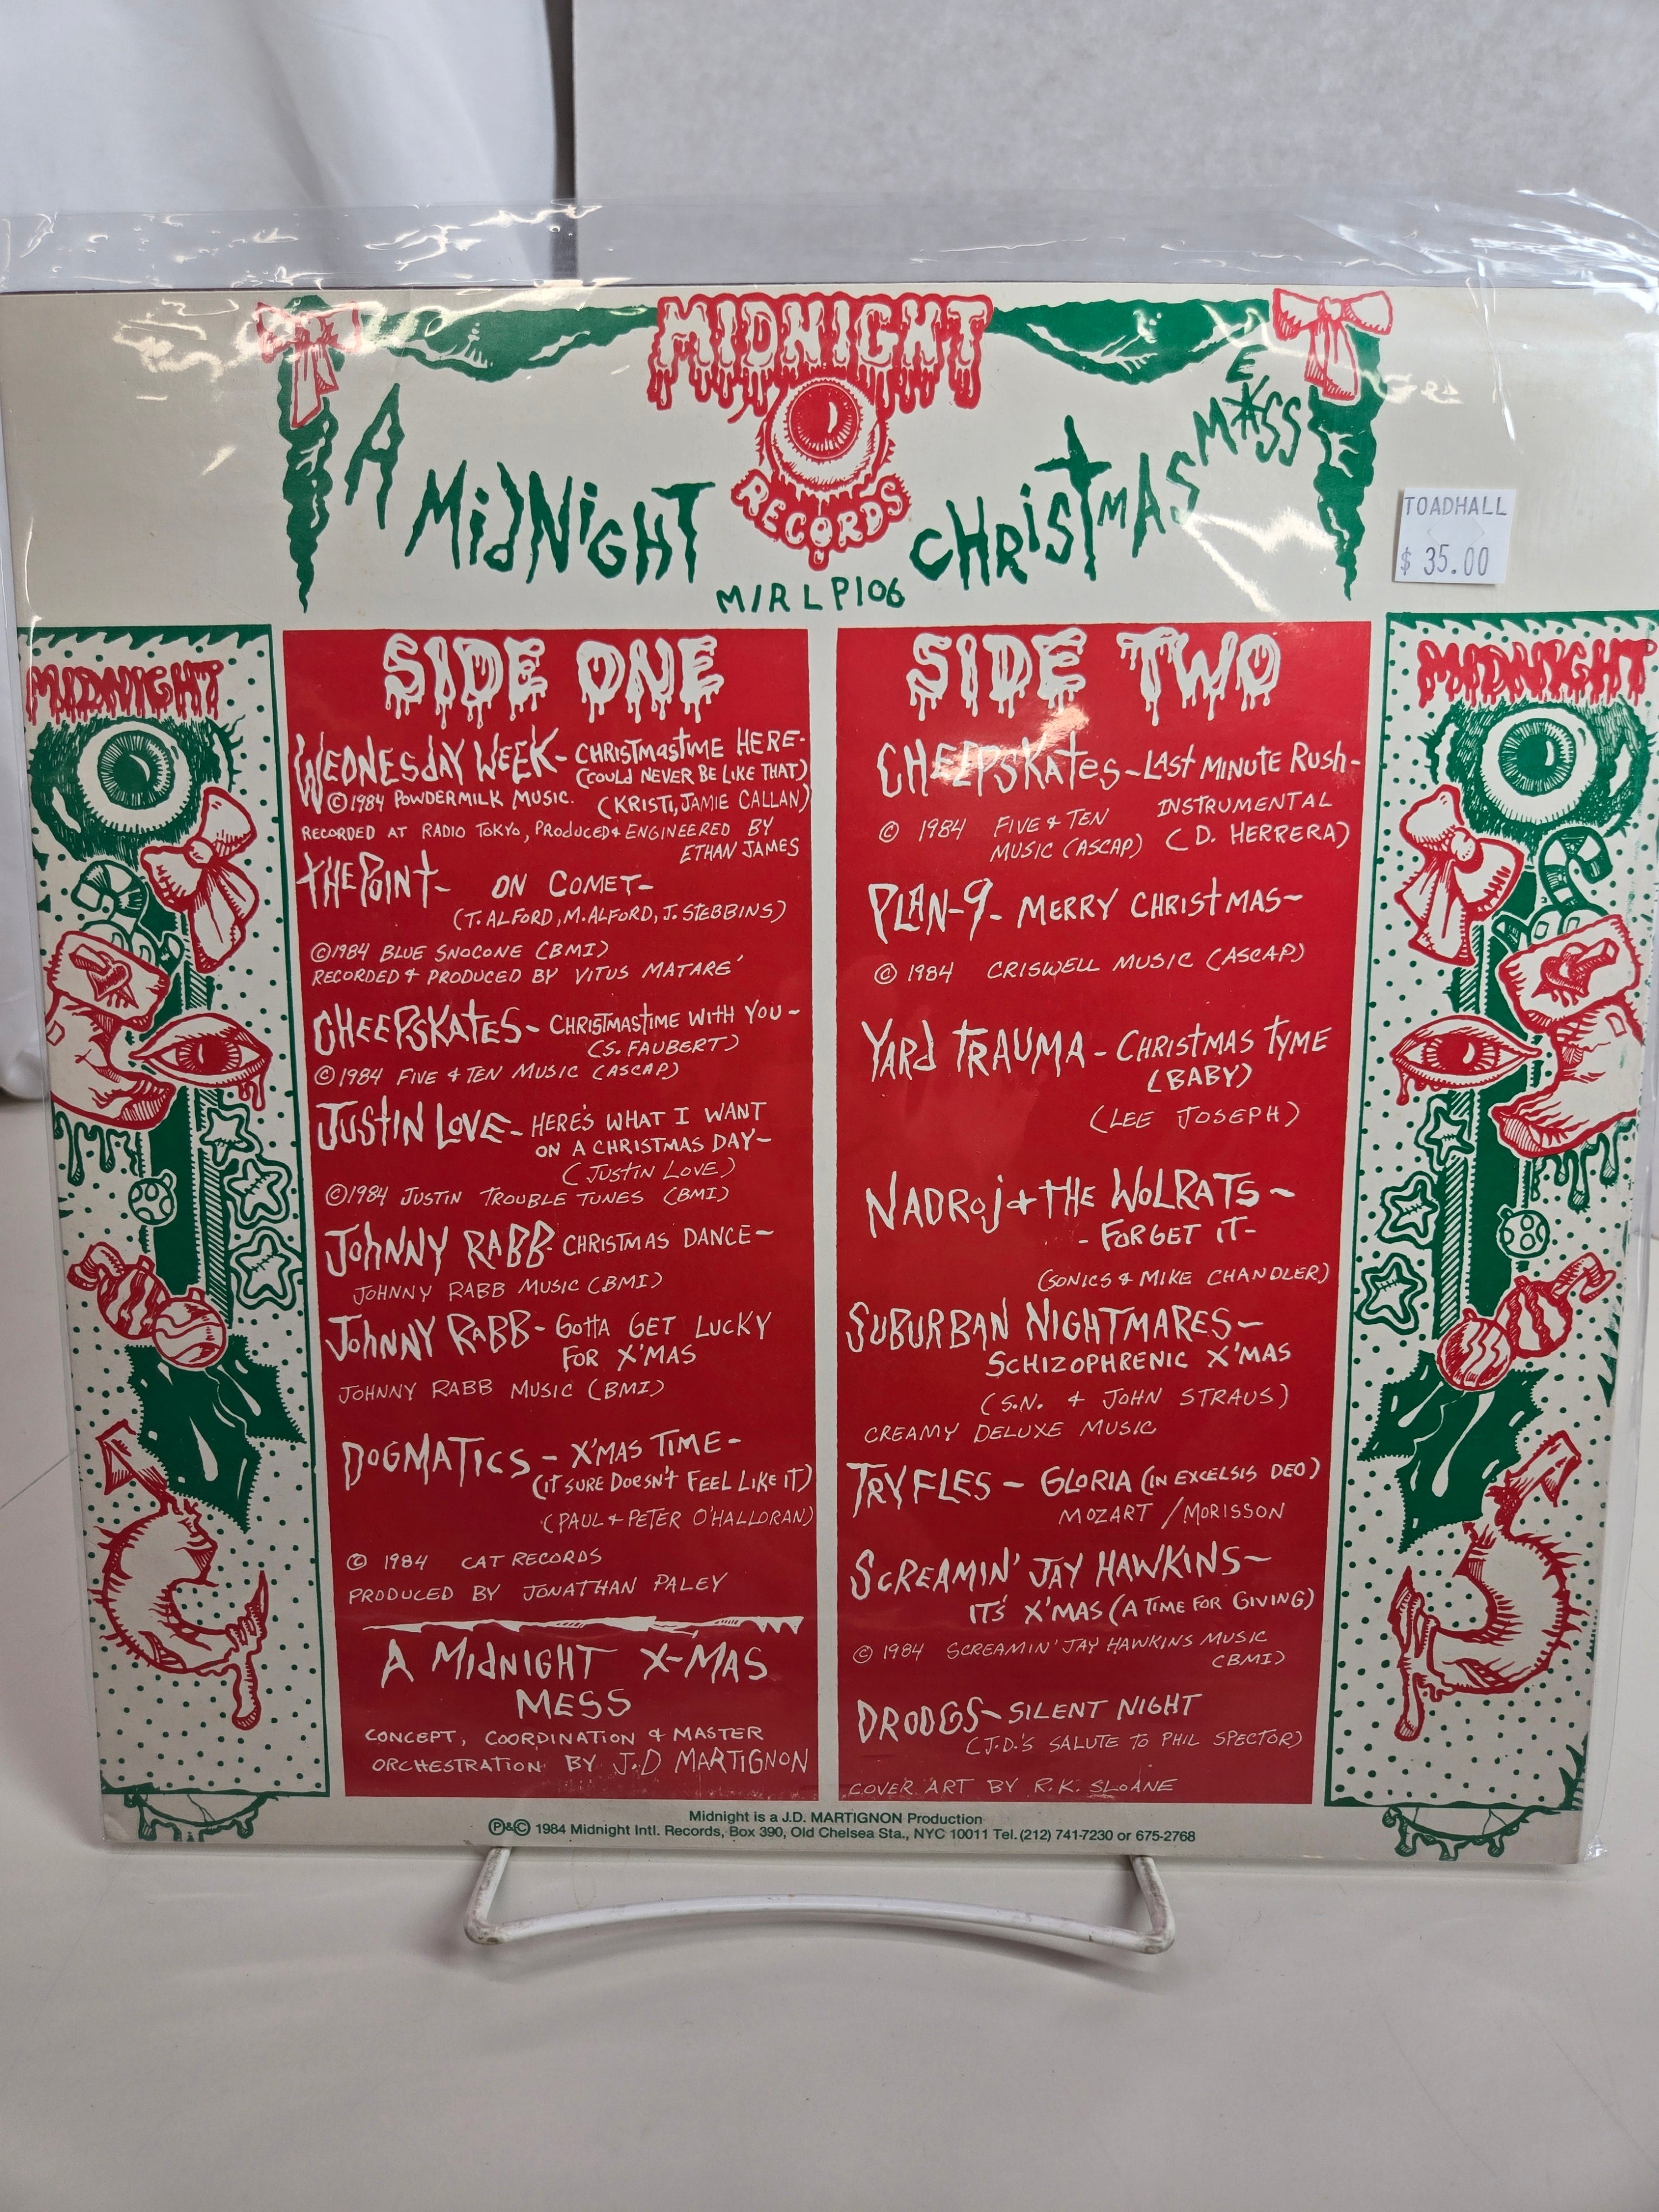 MIDNIGHT
RECORDS
A MIDNIGHT CHRISTMAS MESS
MIRLP106
TOADHALL
$ 35.00
MIDNIGHT
SIDE ONE
WEDNESDAY WEEK - CHRISTMASTIME HERE -
(COULD NEVER BE LIKE THAT)
© 1984 POWDERMILK MUSIC. (KRISTI, JAMIE CALLAN)
RECORDED AT RADIO TOKYO, PRODUCED & ENGINEERED BY
ETHAN JAMES
THE POINT - ON COMET -
(T. ALFORD, M. ALFORD, J. STEBBINS)
© 1984 BLUE SNOCONE (BMI)
RECORDED & PRODUCED BY VITUS MATARE'
CHEEPSKATES - CHRISTMASTIME WITH YOU -
(S. FAUBERT)
© 1984 FIVE & TEN MUSIC (ASCAP)
JUSTIN LOVE - HERE'S WHAT I WANT
ON A CHRISTMAS DAY -
(JUSTIN LOVE)
© 1984 JUSTIN TROUBLE TUNES (BMI)
JOHNNY RABB - CHRISTMAS DANCE -
JOHNNY RABB MUSIC (BMI)
JOHNNY RABB - GOTTA GET LUCKY
FOR X'MAS
JOHNNY RABB MUSIC (BMI)
DOGMATICS - X'MAS TIME -
(IT SURE DOESN'T FEEL LIKE IT)
(PAUL & PETER O'HALLORAN)
© 1984 CAT RECORDS
PRODUCED BY JONATHAN PALEY
A MIDNIGHT X-MAS
MESS
CONCEPT, COORDINATION & MASTER
ORCHESTRATION BY J.D MARTIGNON
SIDE TWO
CHEEPSKATES - LAST MINUTE RUSH -
INSTRUMENTAL
© 1984 FIVE & TEN
MUSIC (ASCAP) (D. HERRERA)
PLAN-9 - MERRY CHRISTMAS -
© 1984 CRISWELL MUSIC (ASCAP)
YARD TRAUMA - CHRISTMAS TYME
(BABY)
(LEE JOSEPH)
NADROJ & THE WOLRATS -
- FORGET IT -
(SONICS & MIKE CHANDLER)
SUBURBAN NIGHTMARES -
SCHIZOPHRENIC X'MAS
(S.N. & JOHN STRAUS)
CREAMY DELUXE MUSIC
TRYFLES - GLORIA (IN EXCELSIS DEO)
MOZART / MORISSON
SCREAMIN' JAY HAWKINS -
IT'S X'MAS (A TIME FOR GIVING)
© 1984 SCREAMIN' JAY HAWKINS MUSIC
(BMI)
DROOGS - SILENT NIGHT
(J.D.'S SALUTE TO PHIL SPECTOR)
COVER ART BY R.K. SLOANE
MIDNIGHT
Midnight is a J.D. MARTIGNON Production
Ⓟ&© 1984 Midnight Intl. Records, Box 390, Old Chelsea Sta., NYC 10011 Tel. (212) 741-7230 or 675-2768